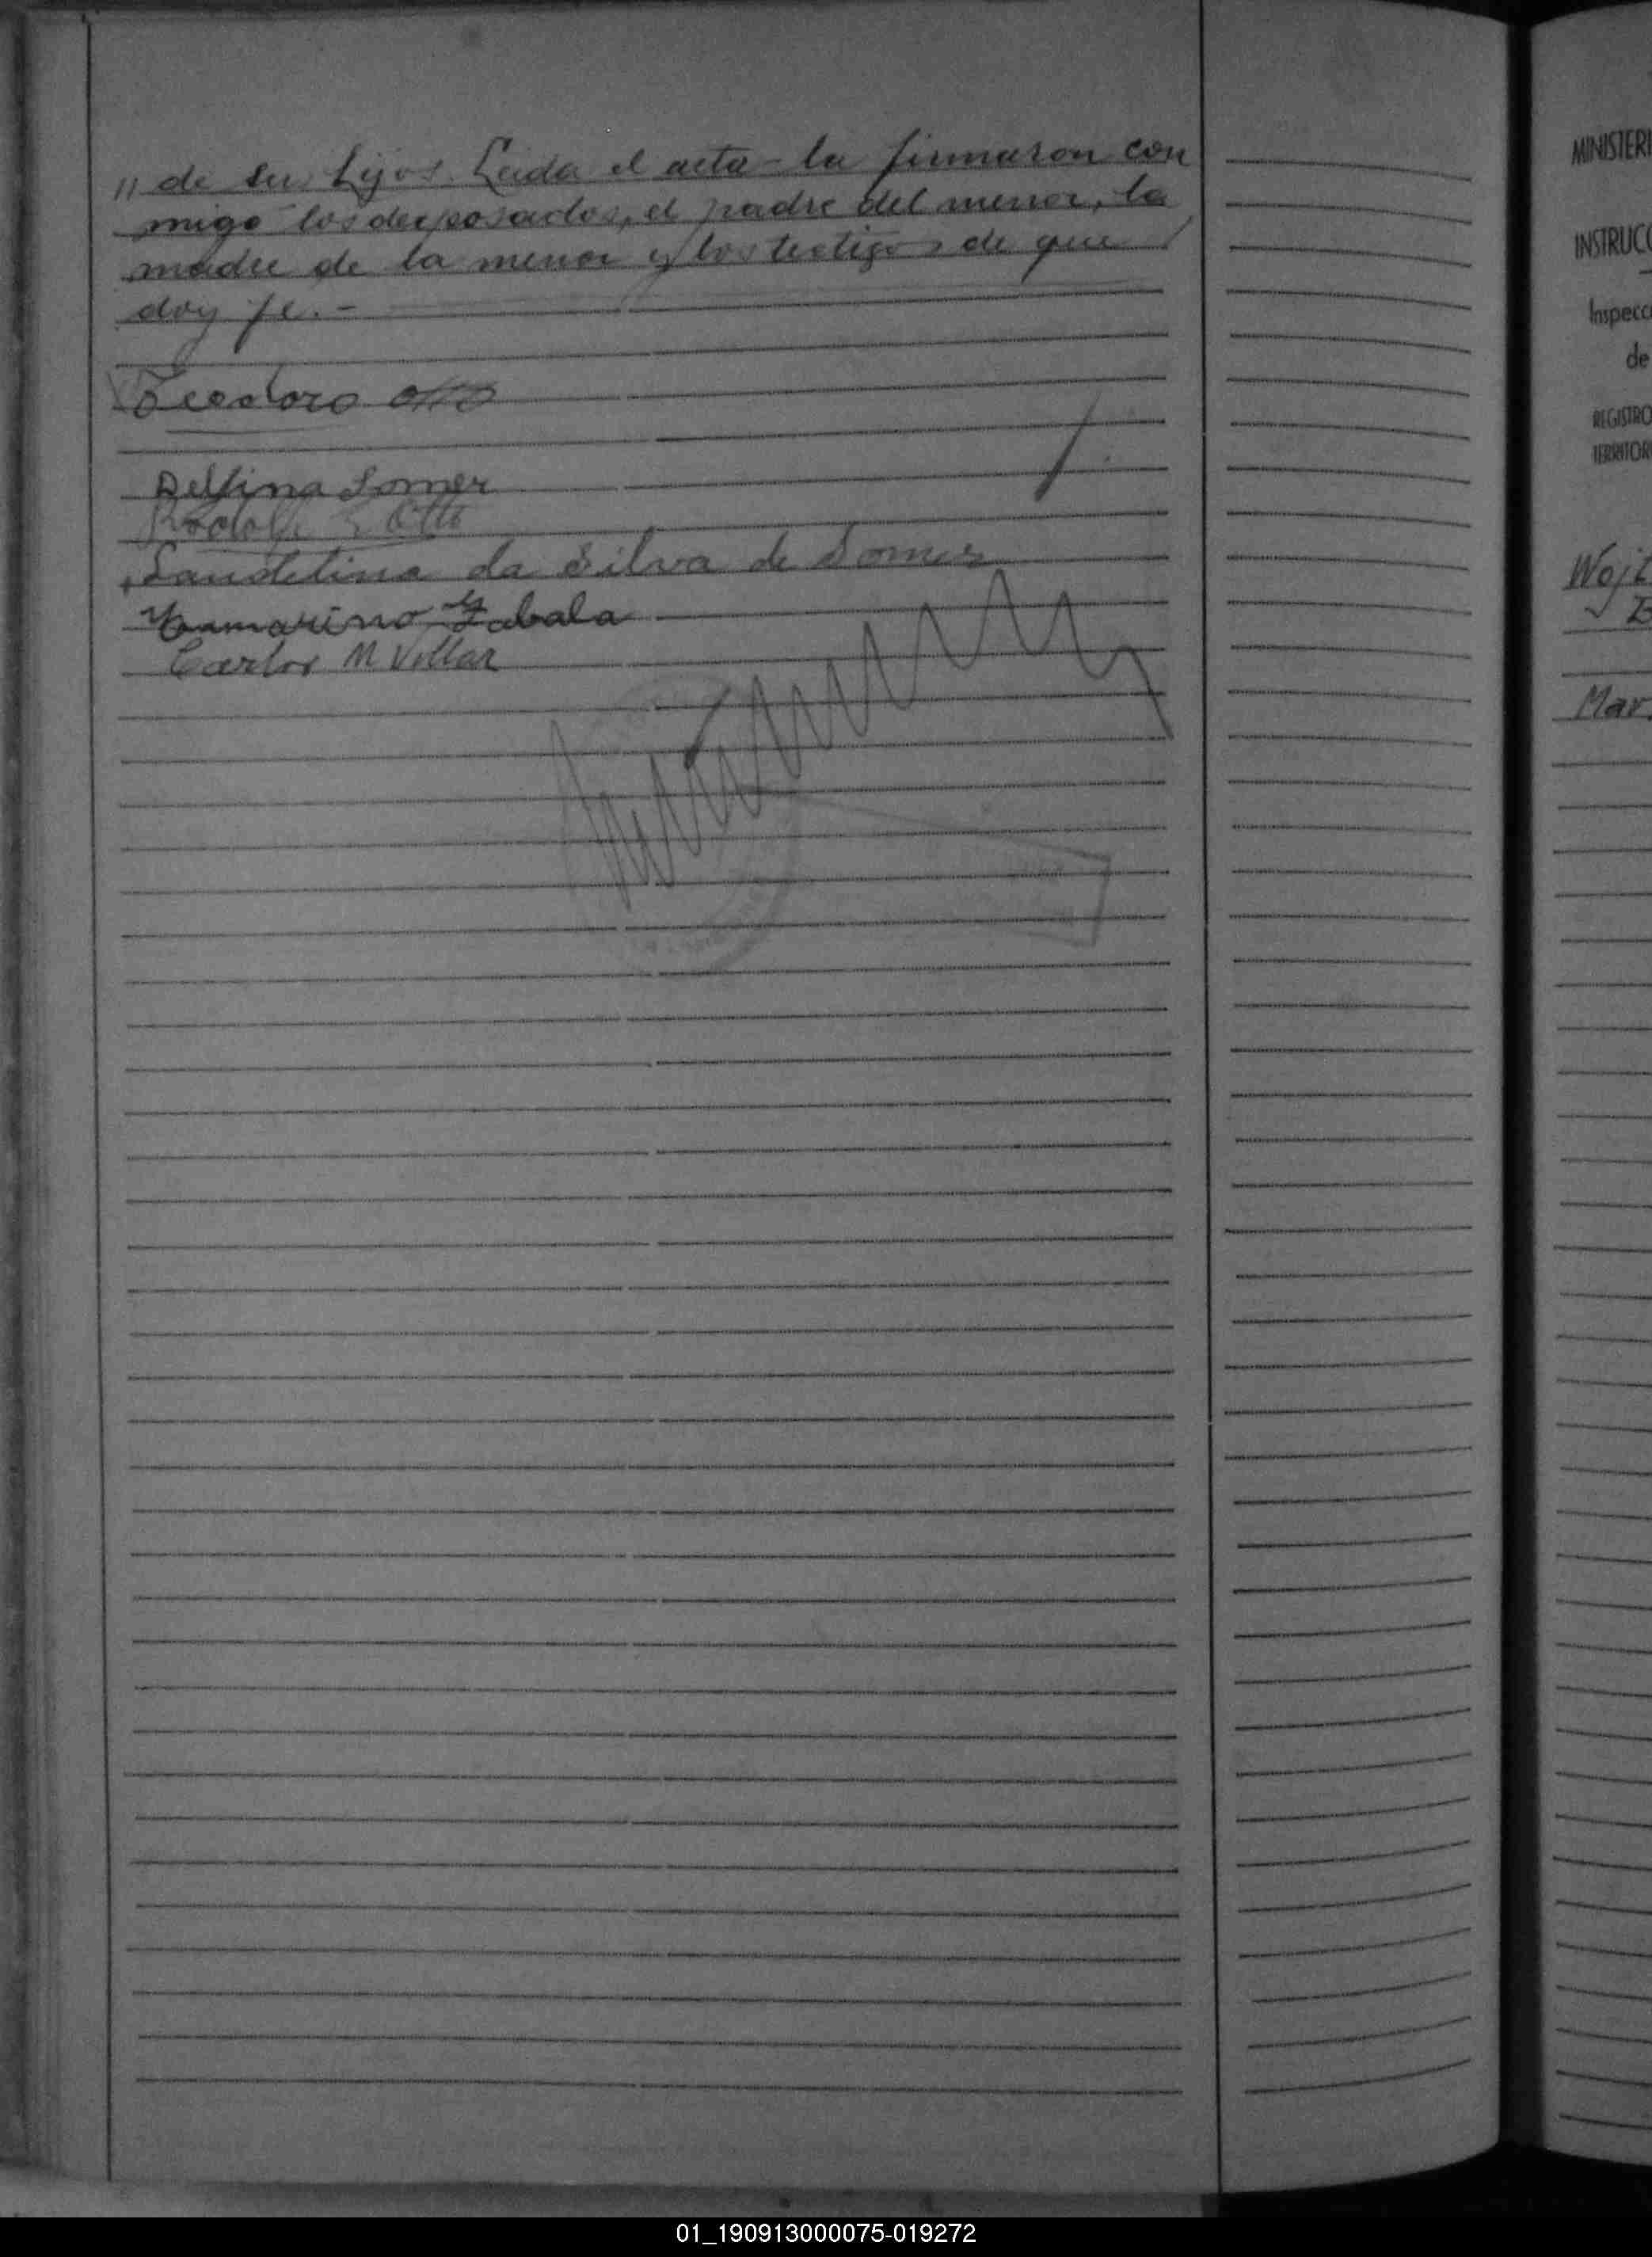 " de sus hijos. Leida el acta - la firmaron con
migo los desposados, el padre del menor, la
madre de la menor y los testigos de que
doy fe. -
Teodoro Otto
Delfina Somer
Rodolfo Otto
Laudelina da Silva de Somer
Zabala
Carlos M Villar
MINISTERI
INSTRUCC
Inspecci
de
REGISTRO
TERRITOR
Mar
01_190913000075-019272